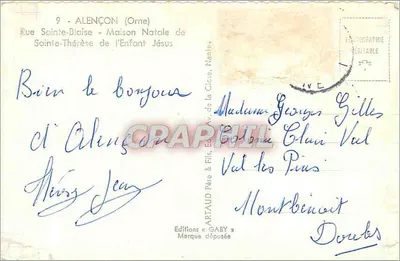 9 - ALENÇON (Orne)
Rue Sainte-Blaise - Maison Natale de
Sainte-Thérèse de l'Enfant Jésus
Bien le bonjour
d'Alençon
PHOTOGRAPHIE
VÉRITABLE
ARTAUD Père & Fils, Éditeurs, de la Close, Nantes
Madame Georges Gilles
Colonie Clair Val
Val les Pins
Montbenoit
Doubs
Editions « GABY »
Marque déposée
CRAPHIL